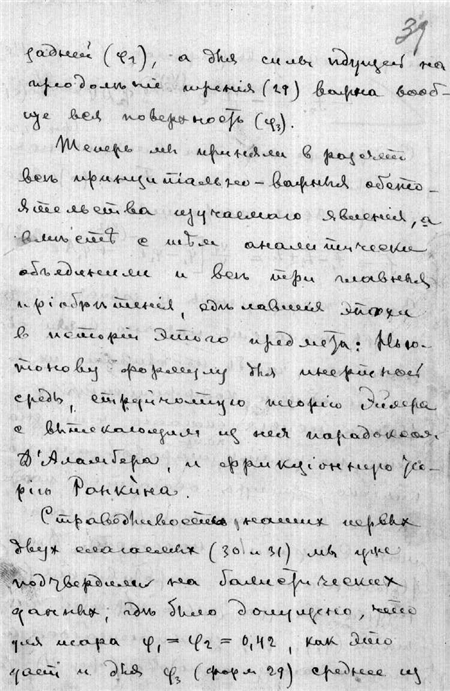 39
задней (φ₂), а для силы идущей на
преодолѣніе тренія (29) важна вооб-
ще вся поверхность (φ₃).
Теперь мы приняли в расчет
всѣ принципіально-важныя обсто-
ятельства изучаемаго явленія, а
вмѣстѣ с тѣм аналитически
объединили и всѣ три главныя
пріобрѣтенія, сдѣлавшія эпохи
в исторіи этого предмета: Нью-
тонову формулу для инертной
среды, струйчатую теорію Эйлера
с вытекающим из нея парадоксом
Д'Аламбера, и фрикціонную тео-
рію Ранкина.
Справедливость наших первых
двух слагаемых (30 и 31) мы уже
подтвердили на балистических
данных, гдѣ было допущено, что
для шара φ₁ = φ₂ = 0,42, как это
дает и для φ₃ (форм 29) среднее из